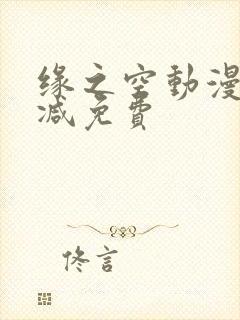 缘之空動漫
减免費
佟言